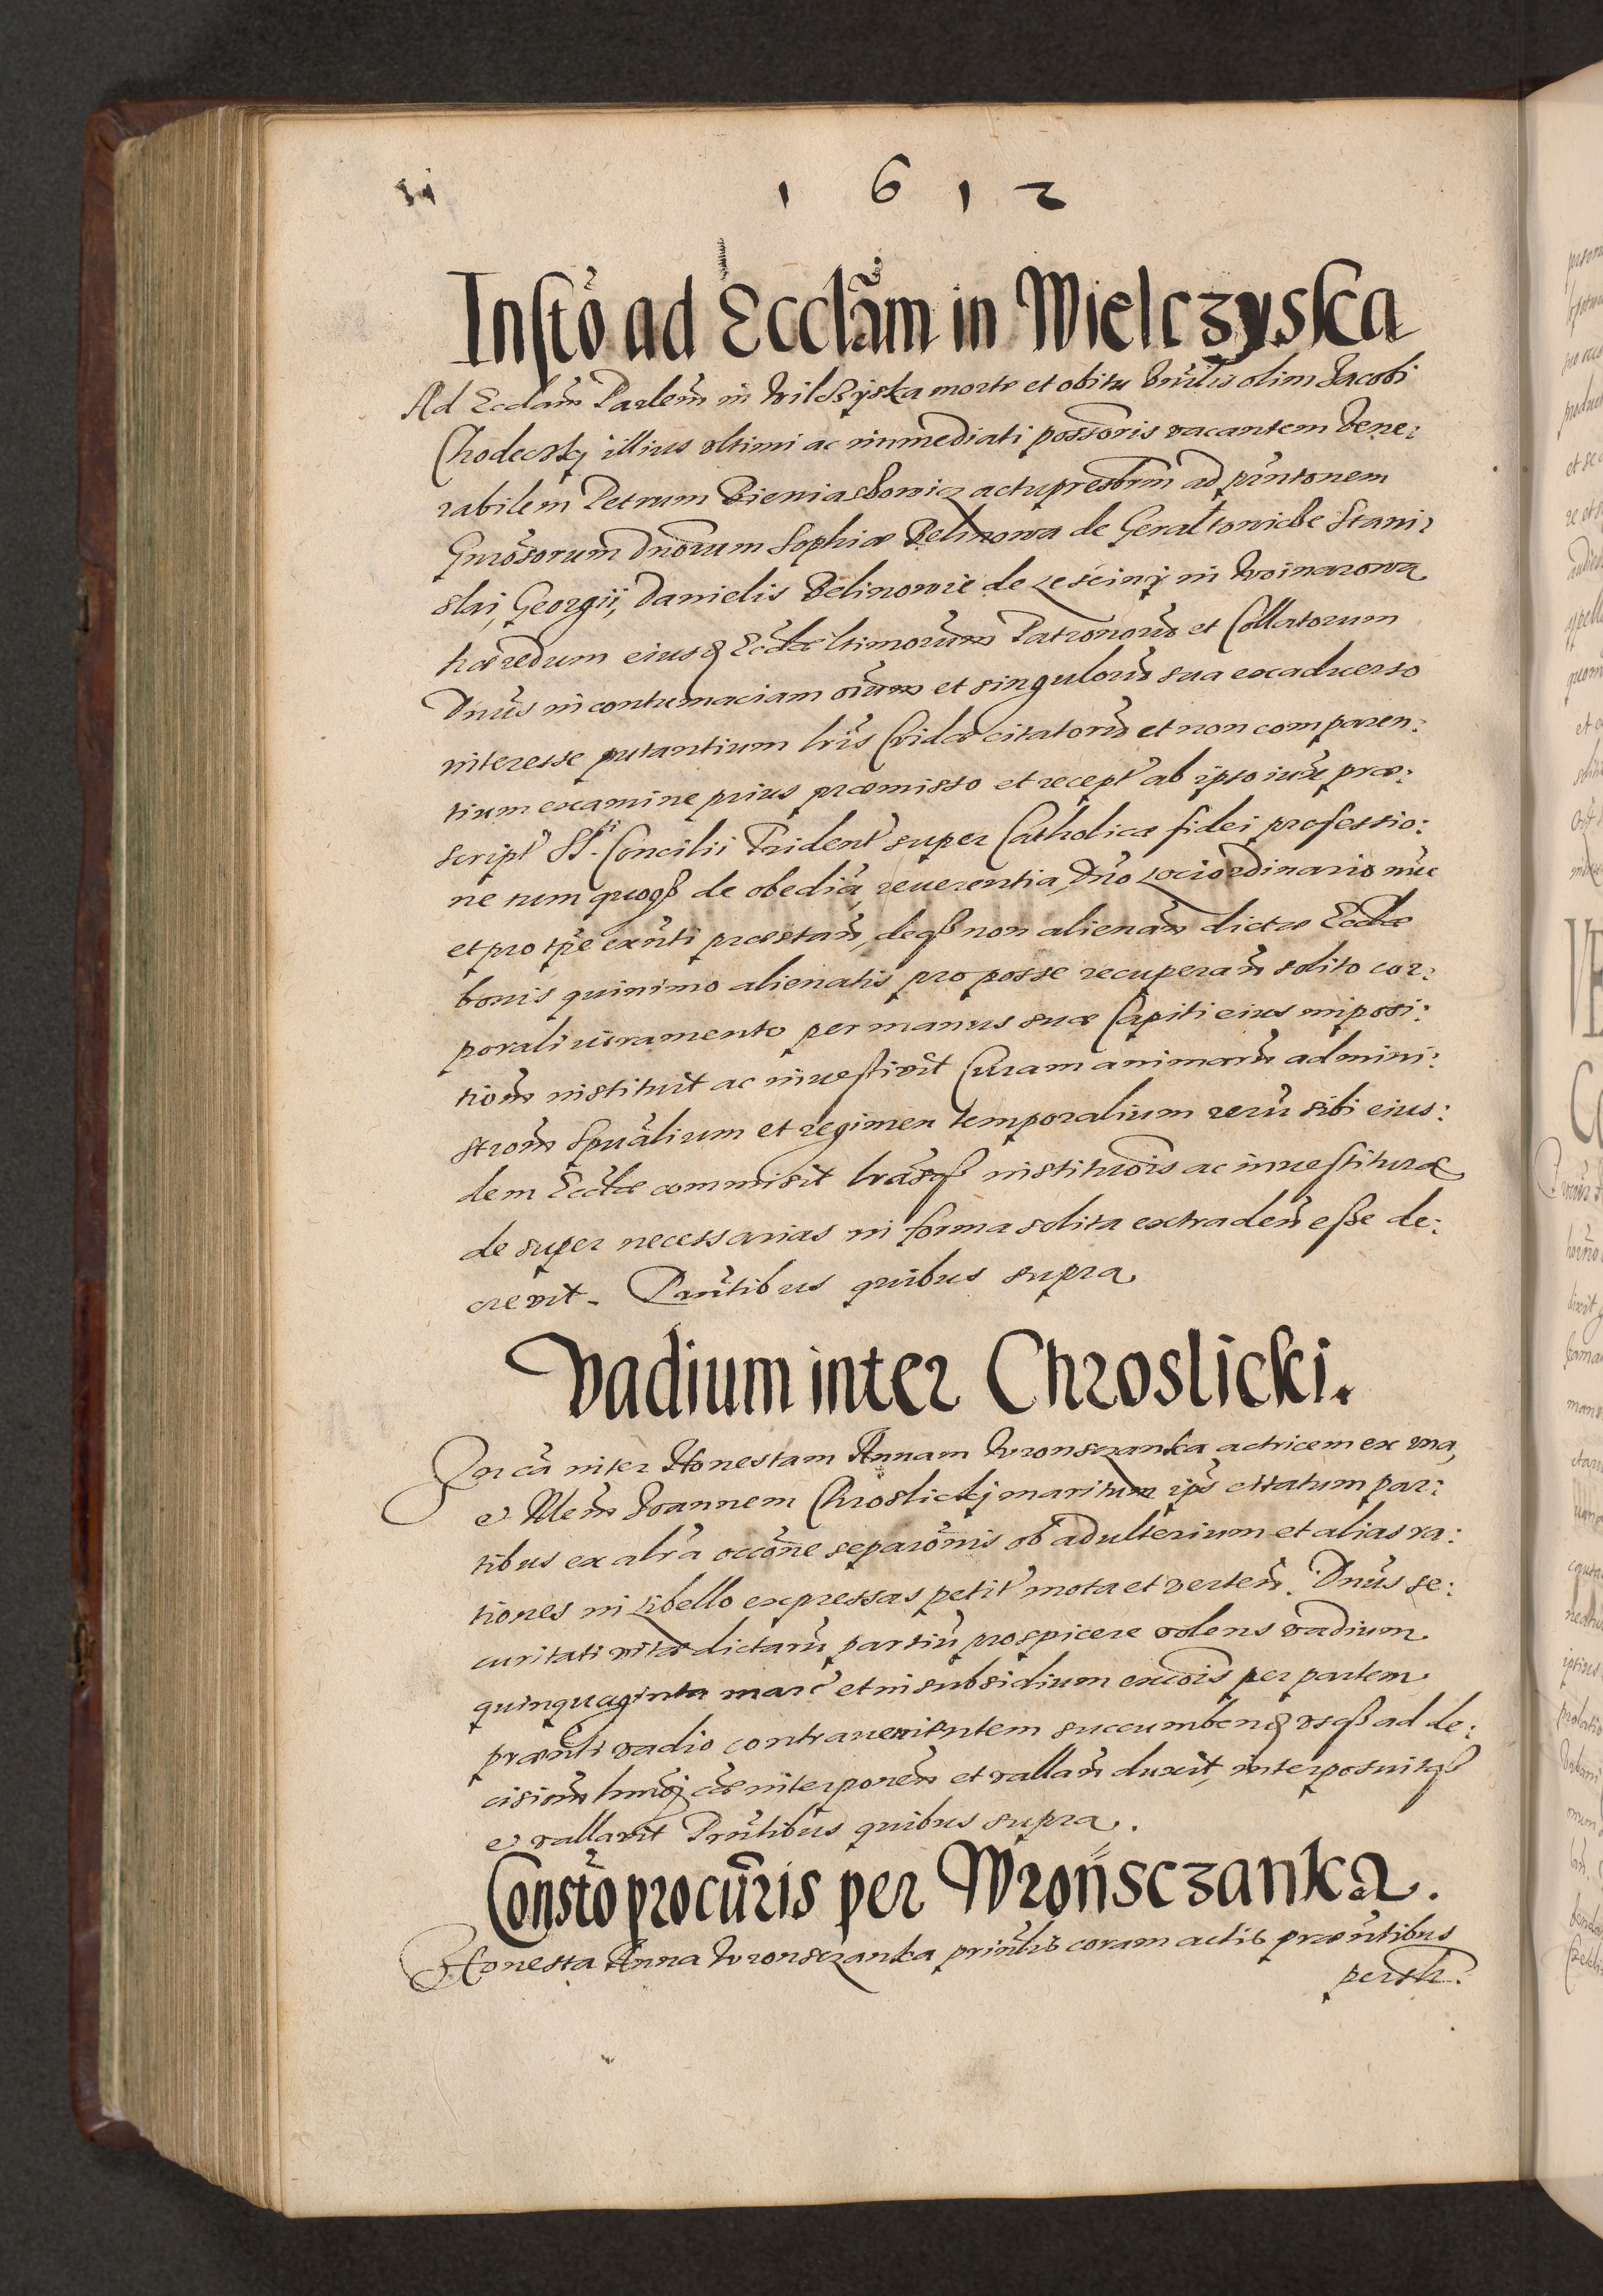 1 6 1 2
Instõ ad Ecclãm in Wielczyska
Ad Ecclãm Parlem̃ in Wilczyska morte et obitu Vnr̃lis olim Jacobi
Chodecsky illius vltimi ac immediati possoris vacantem Vene:
rabilem Petrum Bieniaszowicz actu presbrm̃ ad pñtonem
Gnrõsorum Dnõrum Sophiæ Belinowa de Geraltowicze Stani:
slai, Georgii, Danielis Belinowie de Lesciny in Woinarowa
hæredum eiusq Eccliæ ltimorum Patronorũ et Collatorum
Dnũs in contumaciam oium et singulorũ sua exaduerso
interesse putantium lrĩs Cridæ citatorũ et non comparen:
tium examine prius præmisso et recept' ab ipso iux præ:
script' SS.ti Concilii Trident' super Catholicæ fidei professio:
ne tum quoqз de obediã, reuerentia, Dño Lociordinario nũc
et pro tp̃e exñti præstan̄, deqз non alienan̄ dictæ Eccliæ
bonis quinimo alienatis pro posse recuperan̄ solito cor:
porali iuramento per manus suæ Capiti eius imposi:
tiom̃ instituit ac inuestivit Curam animarũ admini:
strom̃ Spũalium et regimen temporalium rerũ sibi eius:
dem Eccliæ commisit lrãsqз institutois ac inuestituræ
de super necessarias in forma solita extraden̄ esse de:
crevit. Pañtibus quibus supra
Vadium inter Chroslicki.
In cã inter Honestam Annam Wronsczanka actricem ex vna,
e Ilem̃ Ioannem Chroslickj maritum ips̃ citatum par:
tibus ex alr̃a occõne separõnis ob adulterium et alias ra:
tiones in Libello expressas petit' mota et verten̄. Dnũs se:
curitati vitæ dictarũ partiũ prospicere volens vadium
quinquaginta marc' et in subsidium excõis per partem
præñti vadio contrauenientem succumbenq vsqз ad de:
cisionẽ hmõj cæ interponen̄ et vallan̄ duxit, interposuitqз
e vallavit Prñtibus quibus supra.
Constõ procũris per Wrońsczanka.
Honesta Anna Wronsczanka prinlis coram actis præñtibus